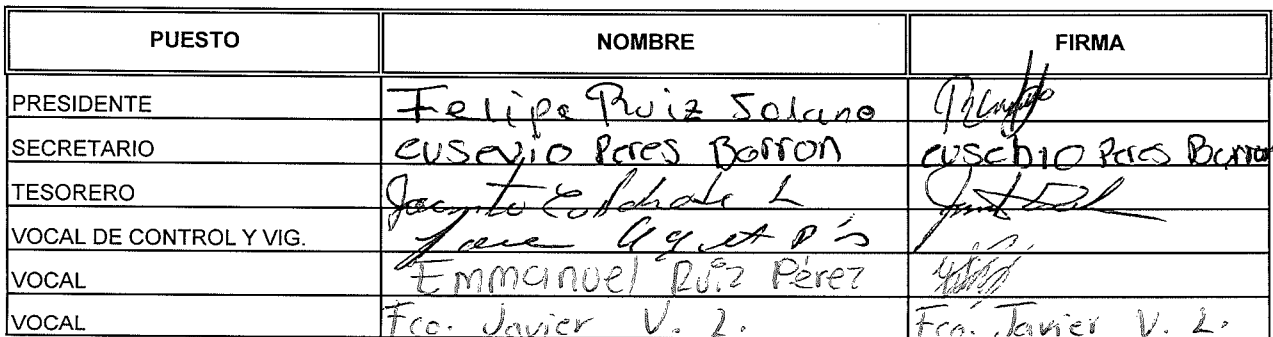 PUESTO NOMBRE FIRMA
PRESIDENTE Felipe Ruiz Solano
SECRETARIO eusevio Peres Borron eusebio Peres Borron
TESORERO Jacinto L
VOCAL DE CONTROL Y VIG.
VOCAL Emmanuel Ruiz Pérez
VOCAL Fco. Javier V. L. Fco. Javier V. L.